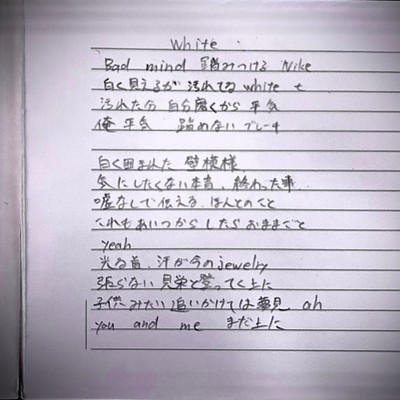 White
Bad mind 踏みつける Nike
白く見えるが 汚れてる white t
汚れた分 自分磨くから 平気
俺 平気 踏めない ブレーキ
白く囲まれた 壁模様
気にしたくない本音、終わった事
嘘なしで伝える、ほんとのこと
これもあいつからしたらおままごと
yeah
光る首、汗が今のjewelry
張らない見栄と登ってく上に
子供みたい追いかけては夢見 ah
you and me まだ上に